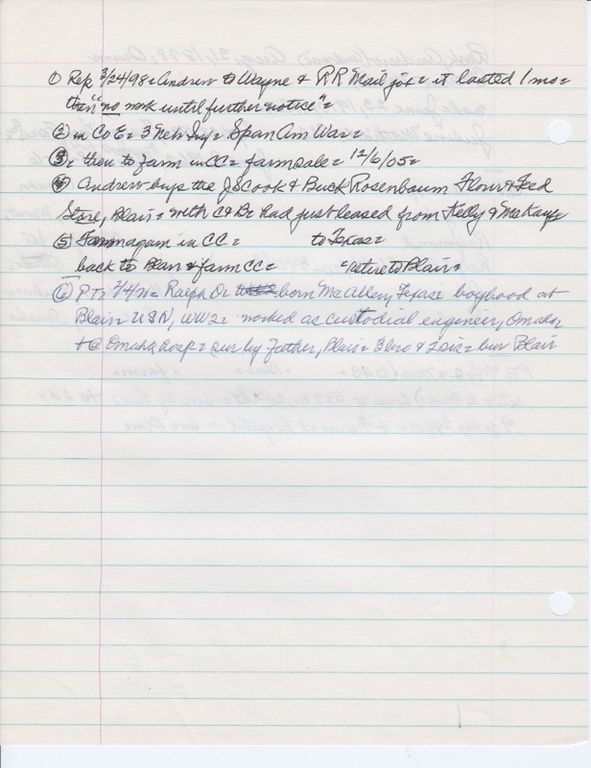 ① Rep 3/24/98 = Andrew to Wayne & RR Mail job = it lasted 1 mo =
then "no work until further notice" =
② in Co E = 3 Nebr Inf = Span Am War =
③ = then to farm in CC = farm sale = 12/6/05 =
④ Andrew buys the J S Cook & Buck Rosenbaum Flour & Feed
Store, Blair = with = had just leased from Kelly &
⑤ Farm again in CC = to Texas =
back to Blair & farm CC = retire to Blair =
⑥ PT = 7/4/71 = Ralph O = born McAllen, Texas = boyhood at
Blair = USN, WW2 = worked as custodial engineer, Omaha
+ @ Omaha hosp = sur by Father, Blair = 3 bro & Lois = bur Blair